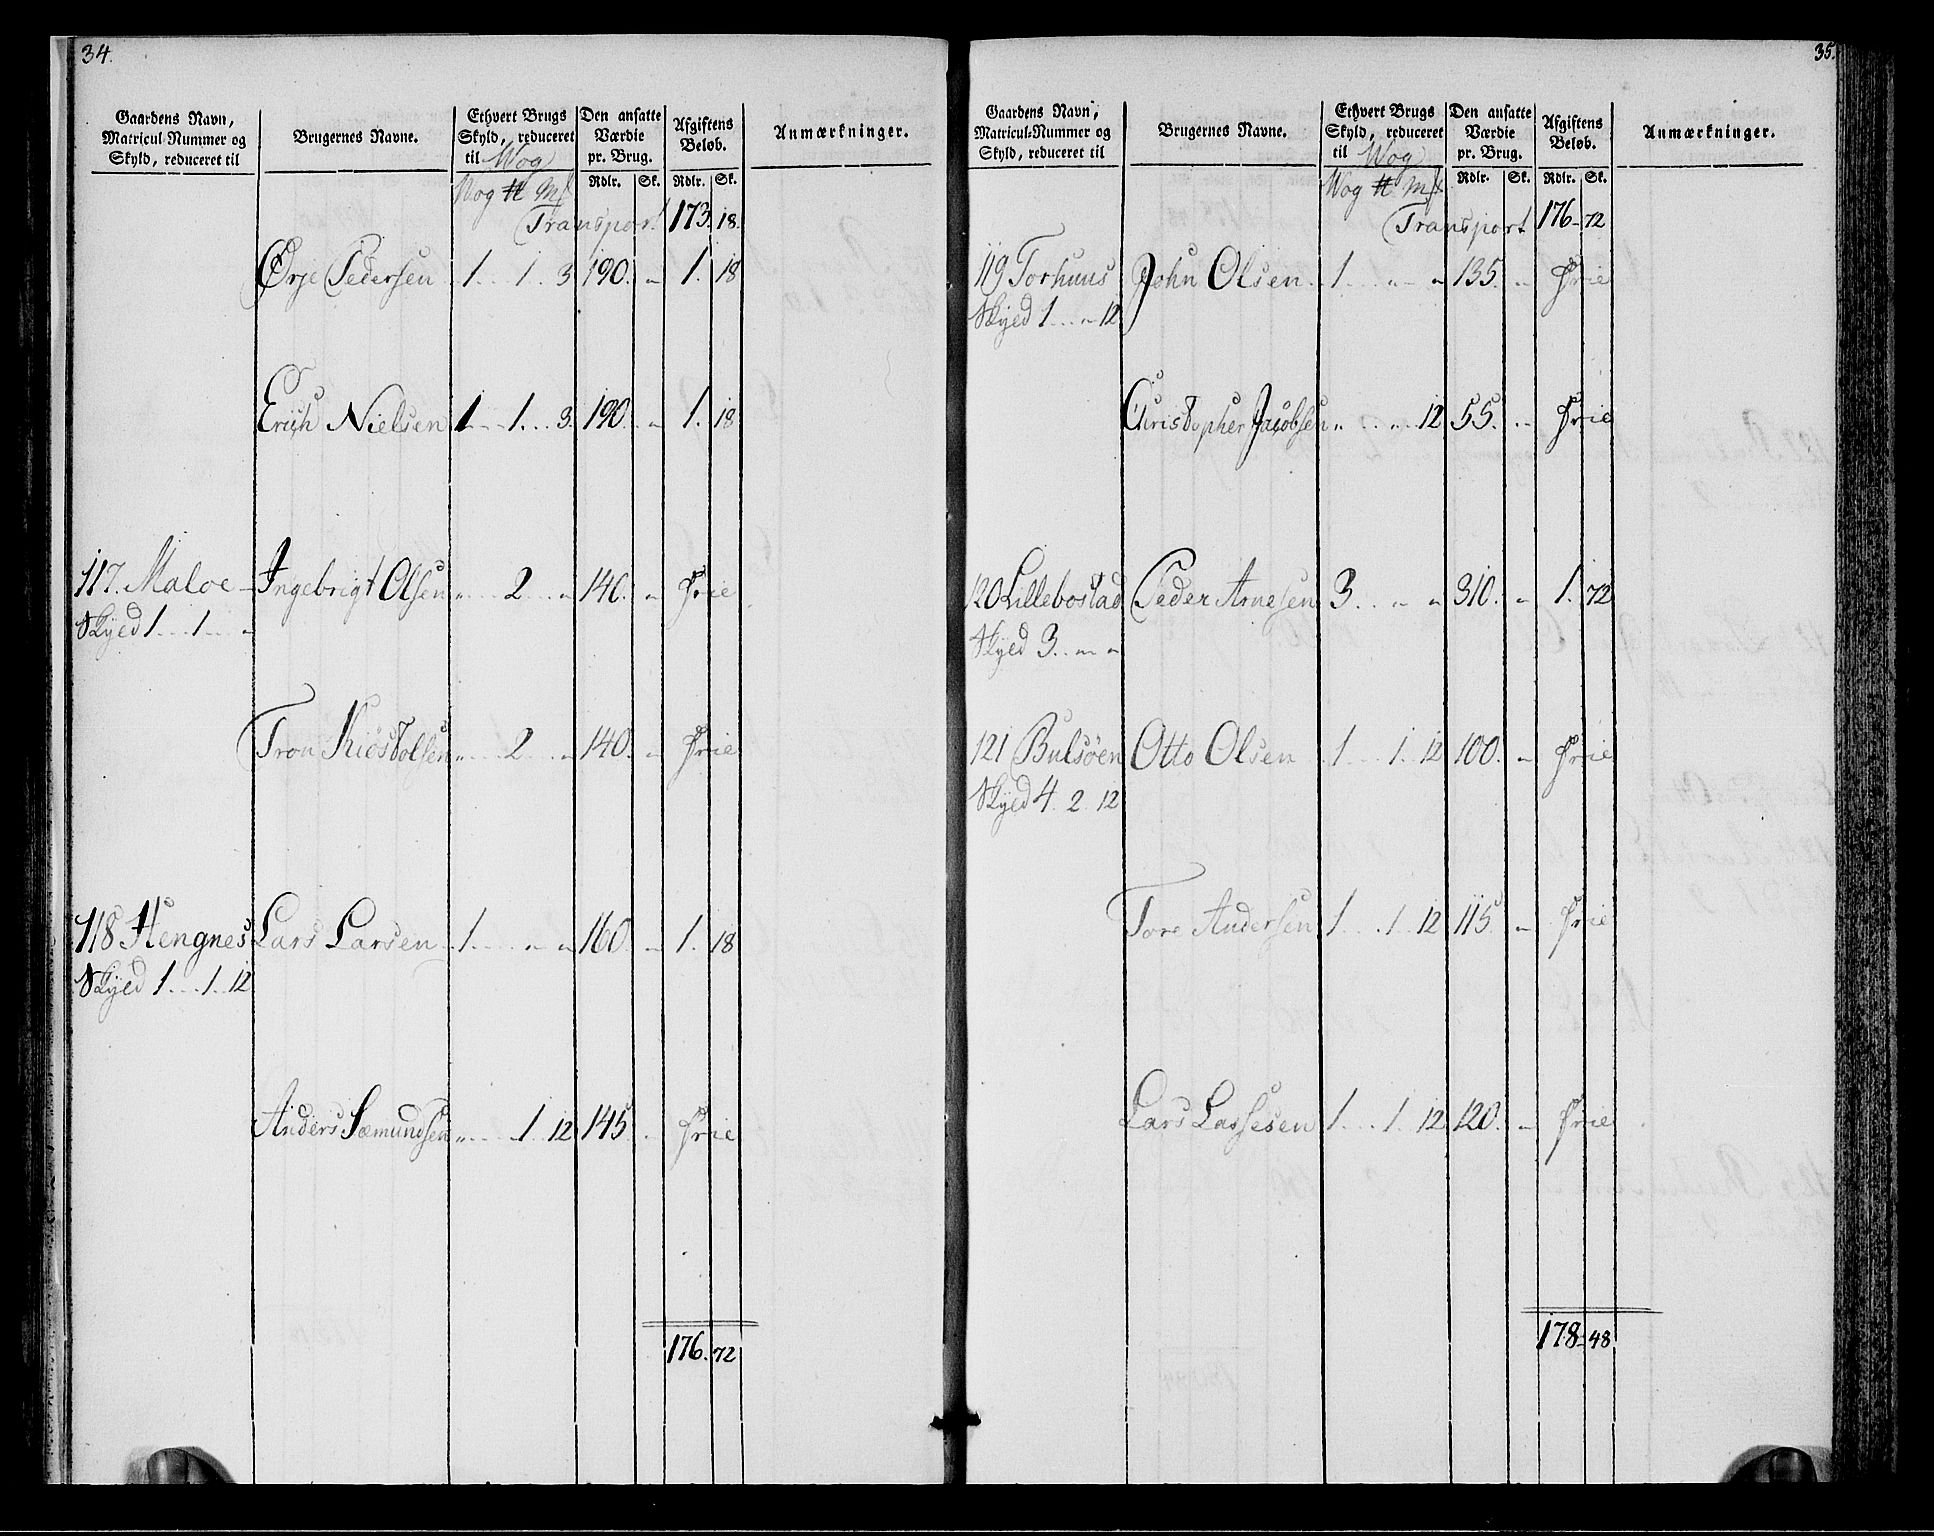 34.
Gaardens Navn, Matricul-Nummer og Skyld, reduceret til
Brugernes Navne.
Ethvert Brugs Skyld, reduceret til Wog
Den ansatte Værdie pr. Brug.
Afgiftens Beløb.
Anmærkninger.
Wog Rdlr. Sk. Rdlr. Sk.
Transport 173. 18.
Ørje Pedersen 1. . 1. 3 190. „ 1. 18
Erich Nielsen 1 . . 1. . 3. 190. „ 1. 18
117. Maloe Ingebrigt Olsen „ . . 2 . . „ 140. „ Frie
Skyed 1 . . 1 . . „
Tron Kiöstolsen „ . . 2 . . „ 140. „ Frie
118 Hengnes Lars Larsen 1. . „ „ 160. „ 1. 18
Skyed 1 . . 1 . . 12
Anders Sæmundsen „ . . 1 12 145 . Frie
176. 72
35.
Gaardens Navn, Matricul-Nummer og Skyld, reduceret til
Brugernes Navne.
Ethvert Brugs Skyld, reduceret til Wog
Den ansatte Værdie pr. Brug.
Afgiftens Beløb.
Anmærkninger.
Wog Rdlr. Sk. Rdlr. Sk.
Transport 176. 72
119 Torhuus John Olsen 1 . . „ „ 135. „ Frie
Skyed 1 . . „ 12
Christopher Jacobsen „ . . „ 12 55. „ Frie
120 Lillebostad Peder Arnesen 3 . . „ „ 310. „ 1. 72
Skyed 3 . . „ „
121 Bulsöen Otto Olsen 1 . . 1. 12 100. „ Frie
Skyed 4. 2. 12
Tore Andersen 1 . . 1 12 115 „ Frie
Lars Lassesen 1 . . 1. 12 120. „ Frie
178. 48